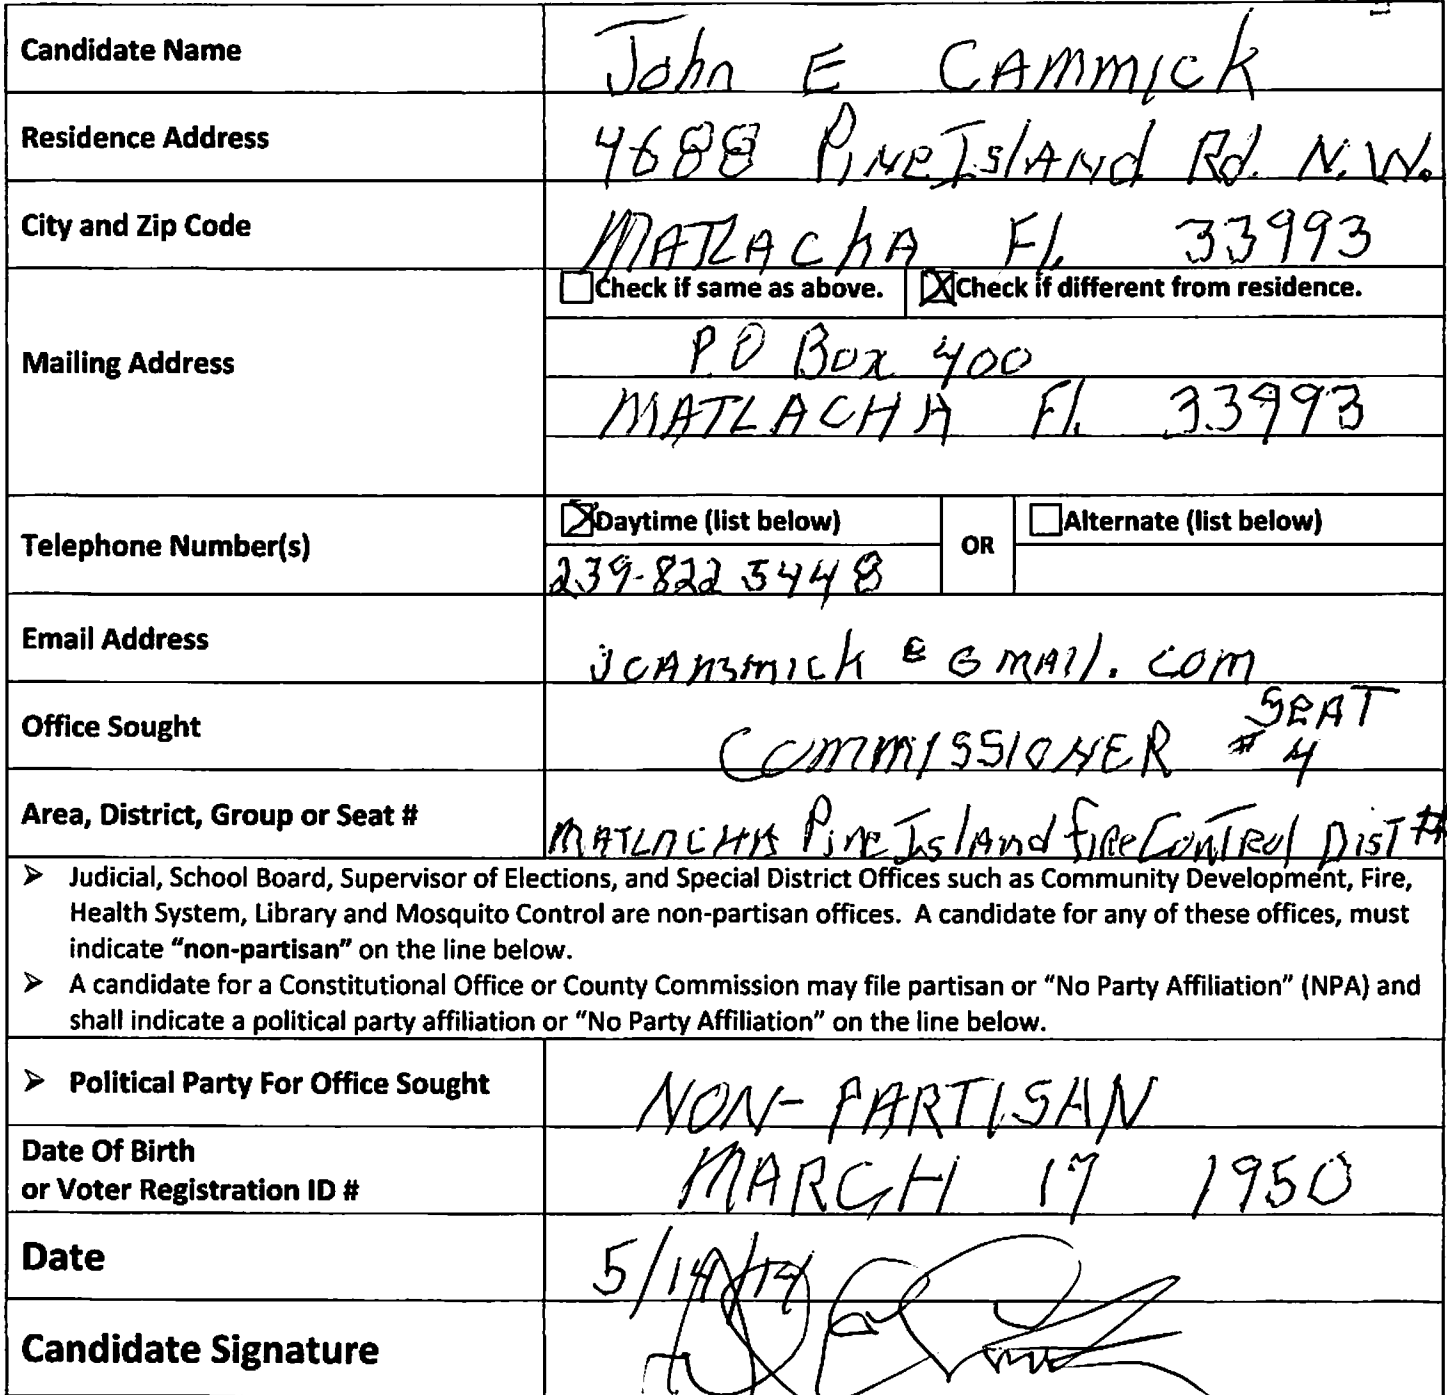 Candidate Name John E CAMMICK
Residence Address 4688 PINE IslANd Rd. N.W.
City and Zip Code MATLAChA Fl. 33993
☐ Check if same as above. ☒ Check if different from residence.
Mailing Address P.O Box 400
MATLACHA Fl. 33993
Telephone Number(s) ☒ Daytime (list below) OR ☐ Alternate (list below)
239-822 5448
Email Address @ GMAIl. com
Office Sought COMMISSIONER # SEAT 4
Area, District, Group or Seat # MATLACHA Pine IslAnd fire Control Dist #
➢ Judicial, School Board, Supervisor of Elections, and Special District Offices such as Community Development, Fire,
Health System, Library and Mosquito Control are non-partisan offices. A candidate for any of these offices, must
indicate “non-partisan” on the line below.
➢ A candidate for a Constitutional Office or County Commission may file partisan or “No Party Affiliation” (NPA) and
shall indicate a political party affiliation or “No Party Affiliation” on the line below.
➢ Political Party For Office Sought NON-PARTISAN
Date Of Birth
or Voter Registration ID # MARCH 17 1950
Date 5/14/14
Candidate Signature